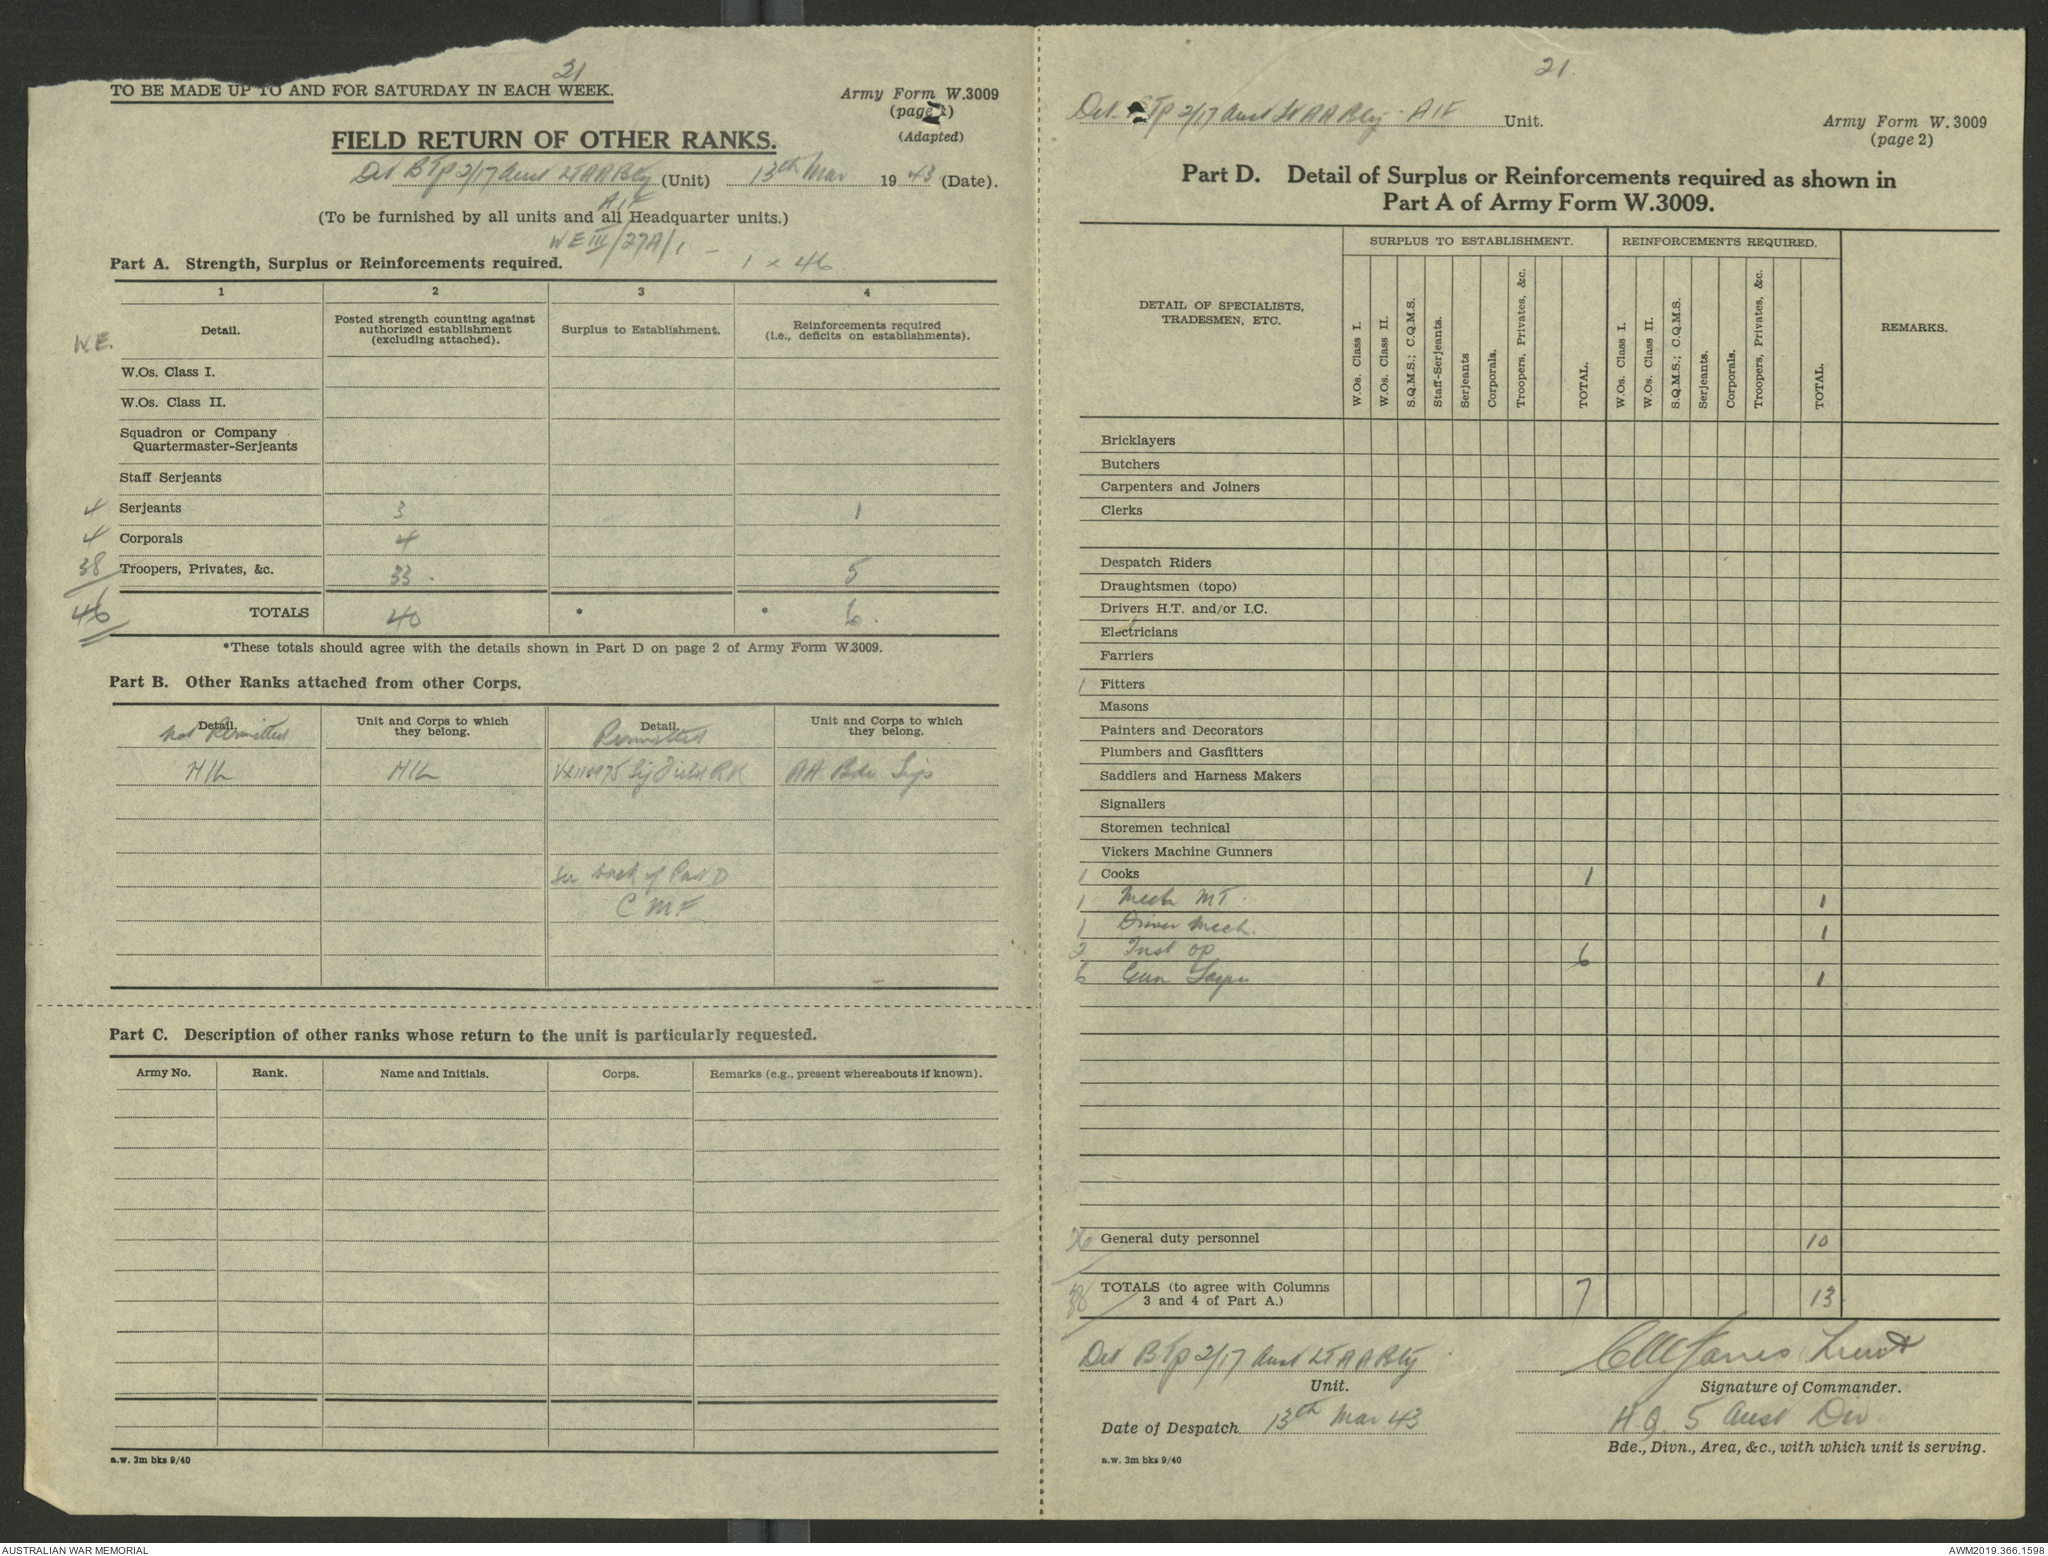 21
TO BE MADE UP TO AND FOR SATURDAY IN EACH WEEK.
Army Form W.3009
(page 1)
(Adapted)
FIELD RETURN OF OTHER RANKS.
Det B Tp 2/17 Aust Lt AA Bty (Unit) 13th Mar 1943 (Date).
AIF
(To be furnished by all units and all Headquarter units.)
WE III/27A/1 - 1 x 46
Part A. Strength, Surplus or Reinforcements required.
1 2 3 4
W.E. Detail. Posted strength counting against authorized establishment (excluding attached). Surplus to Establishment. Reinforcements required (i.e., deficits on establishments).
W.Os. Class I.
W.Os. Class II.
Squadron or Company
Quartermaster-Serjeants
Staff Serjeants
4 Serjeants 3 1
4 Corporals 4
38 Troopers, Privates, &c. 33 5
46 TOTALS 40 * * 6
*These totals should agree with the details shown in Part D on page 2 of Army Form W.3009.
Part B. Other Ranks attached from other Corps.
Detail. Unit and Corps to which they belong. Detail. Unit and Corps to which they belong.
Not Permitted Permitted
NIL NIL Sig Field RK AA Bde Sigs
See back of Part D
CMF
Part C. Description of other ranks whose return to the unit is particularly requested.
Army No. Rank. Name and Initials. Corps. Remarks (e.g., present whereabouts if known).
a.w. 3m bks 9/40
21.
Det B Tp 2/17 Aust Lt AA Bty AIF Unit.
Army Form W.3009
(page 2)
Part D. Detail of Surplus or Reinforcements required as shown in
Part A of Army Form W.3009.
SURPLUS TO ESTABLISHMENT. REINFORCEMENTS REQUIRED.
DETAIL OF SPECIALISTS, TRADESMEN, ETC.
W.Os. Class I. W.Os. Class II. S.Q.M.S.; C.Q.M.S. Staff-Serjeants. Serjeants Corporals. Troopers, Privates, &c. TOTAL.
W.Os. Class I. W.Os. Class II. S.Q.M.S.; C.Q.M.S. Serjeants. Corporals. Troopers, Privates, &c. TOTAL.
REMARKS.
Bricklayers
Butchers
Carpenters and Joiners
Clerks
Despatch Riders
Draughtsmen (topo)
Drivers H.T. and/or I.C.
Electricians
Farriers
1 Fitters
Masons
Painters and Decorators
Plumbers and Gasfitters
Saddlers and Harness Makers
Signallers
Storemen technical
Vickers Machine Gunners
1 Cooks 1
1 Mech MT. 1
1 Driver Mech. 1
2 Inst op 6
6 Gun Layers 1
26 General duty personnel 10
38 TOTALS (to agree with Columns
3 and 4 of Part A.) 7 13
Det B Tp 2/17 Aust Lt AA Bty
Unit.
Jones Lieut
Signature of Commander.
Date of Despatch 13th Mar 43
H.Q. 5 Aust Div
Bde., Divn., Area, &c., with which unit is serving.
a.w. 3m bks 9/40
AUSTRALIAN WAR MEMORIAL
AWM2019.366.1598